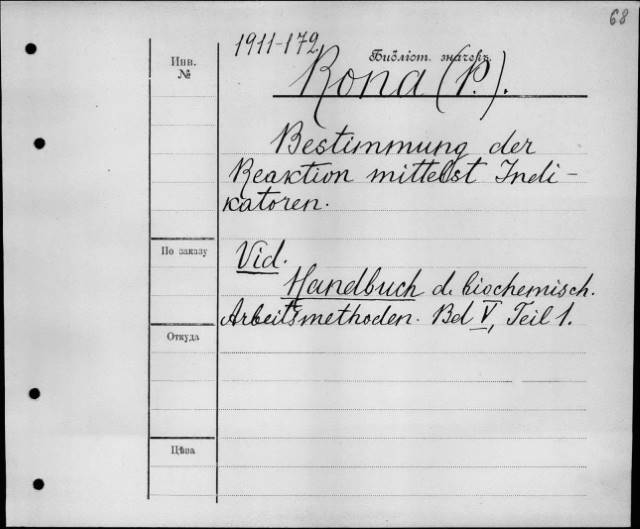 68
1911-172
Инв.
№
Библіот. значекъ
Rona (P.).
Bestimmung der
Reaktion mittelst Indi-
katoren.
По заказу
Vid.
Handbuch d. biochemisch.
Arbeitsmethoden. Bd V, Teil 1.
Откуда
Цѣна